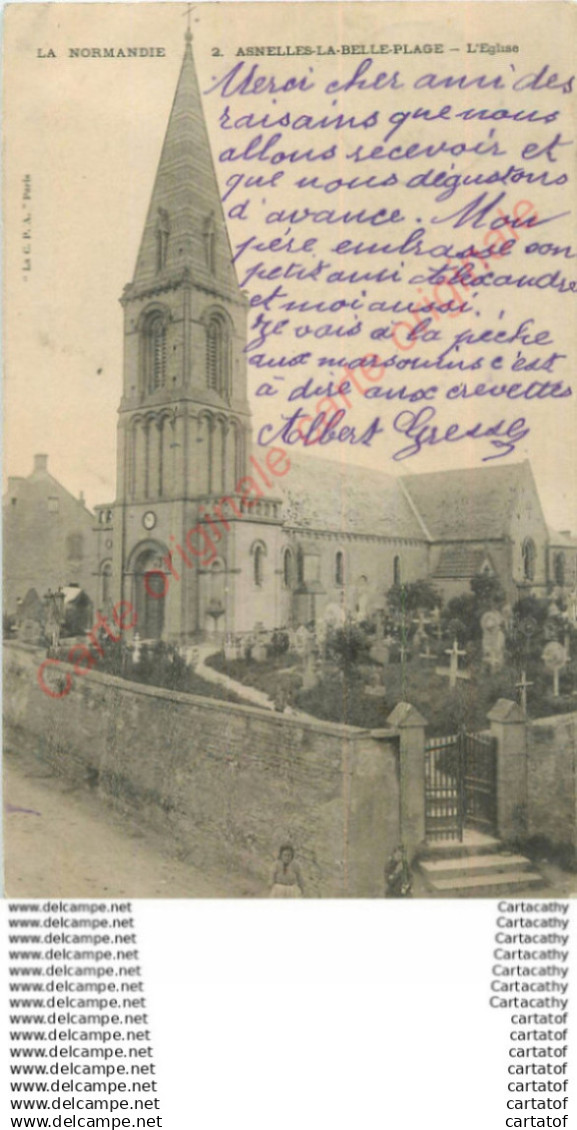 LA NORMANDIE 2. ASNELLES-LA-BELLE-PLAGE – L'Eglise
Merci cher ami des
raisains que nous
allons recevoir et
que nous dégustons
d'avance. Mon
père embrasse son
petit ami Alexandre
et moi aussi.
Je vais à la pêche
aux marsouins c'est
à dire aux crevettes
Albert Gresse
"La C. P. A." Paris
Carte originale carte originale
www.delcampe.net Cartacathy
www.delcampe.net Cartacathy
www.delcampe.net Cartacathy
www.delcampe.net Cartacathy
www.delcampe.net Cartacathy
www.delcampe.net Cartacathy
www.delcampe.net Cartacathy
www.delcampe.net cartatof
www.delcampe.net cartatof
www.delcampe.net cartatof
www.delcampe.net cartatof
www.delcampe.net cartatof
www.delcampe.net cartatof
www.delcampe.net cartatof